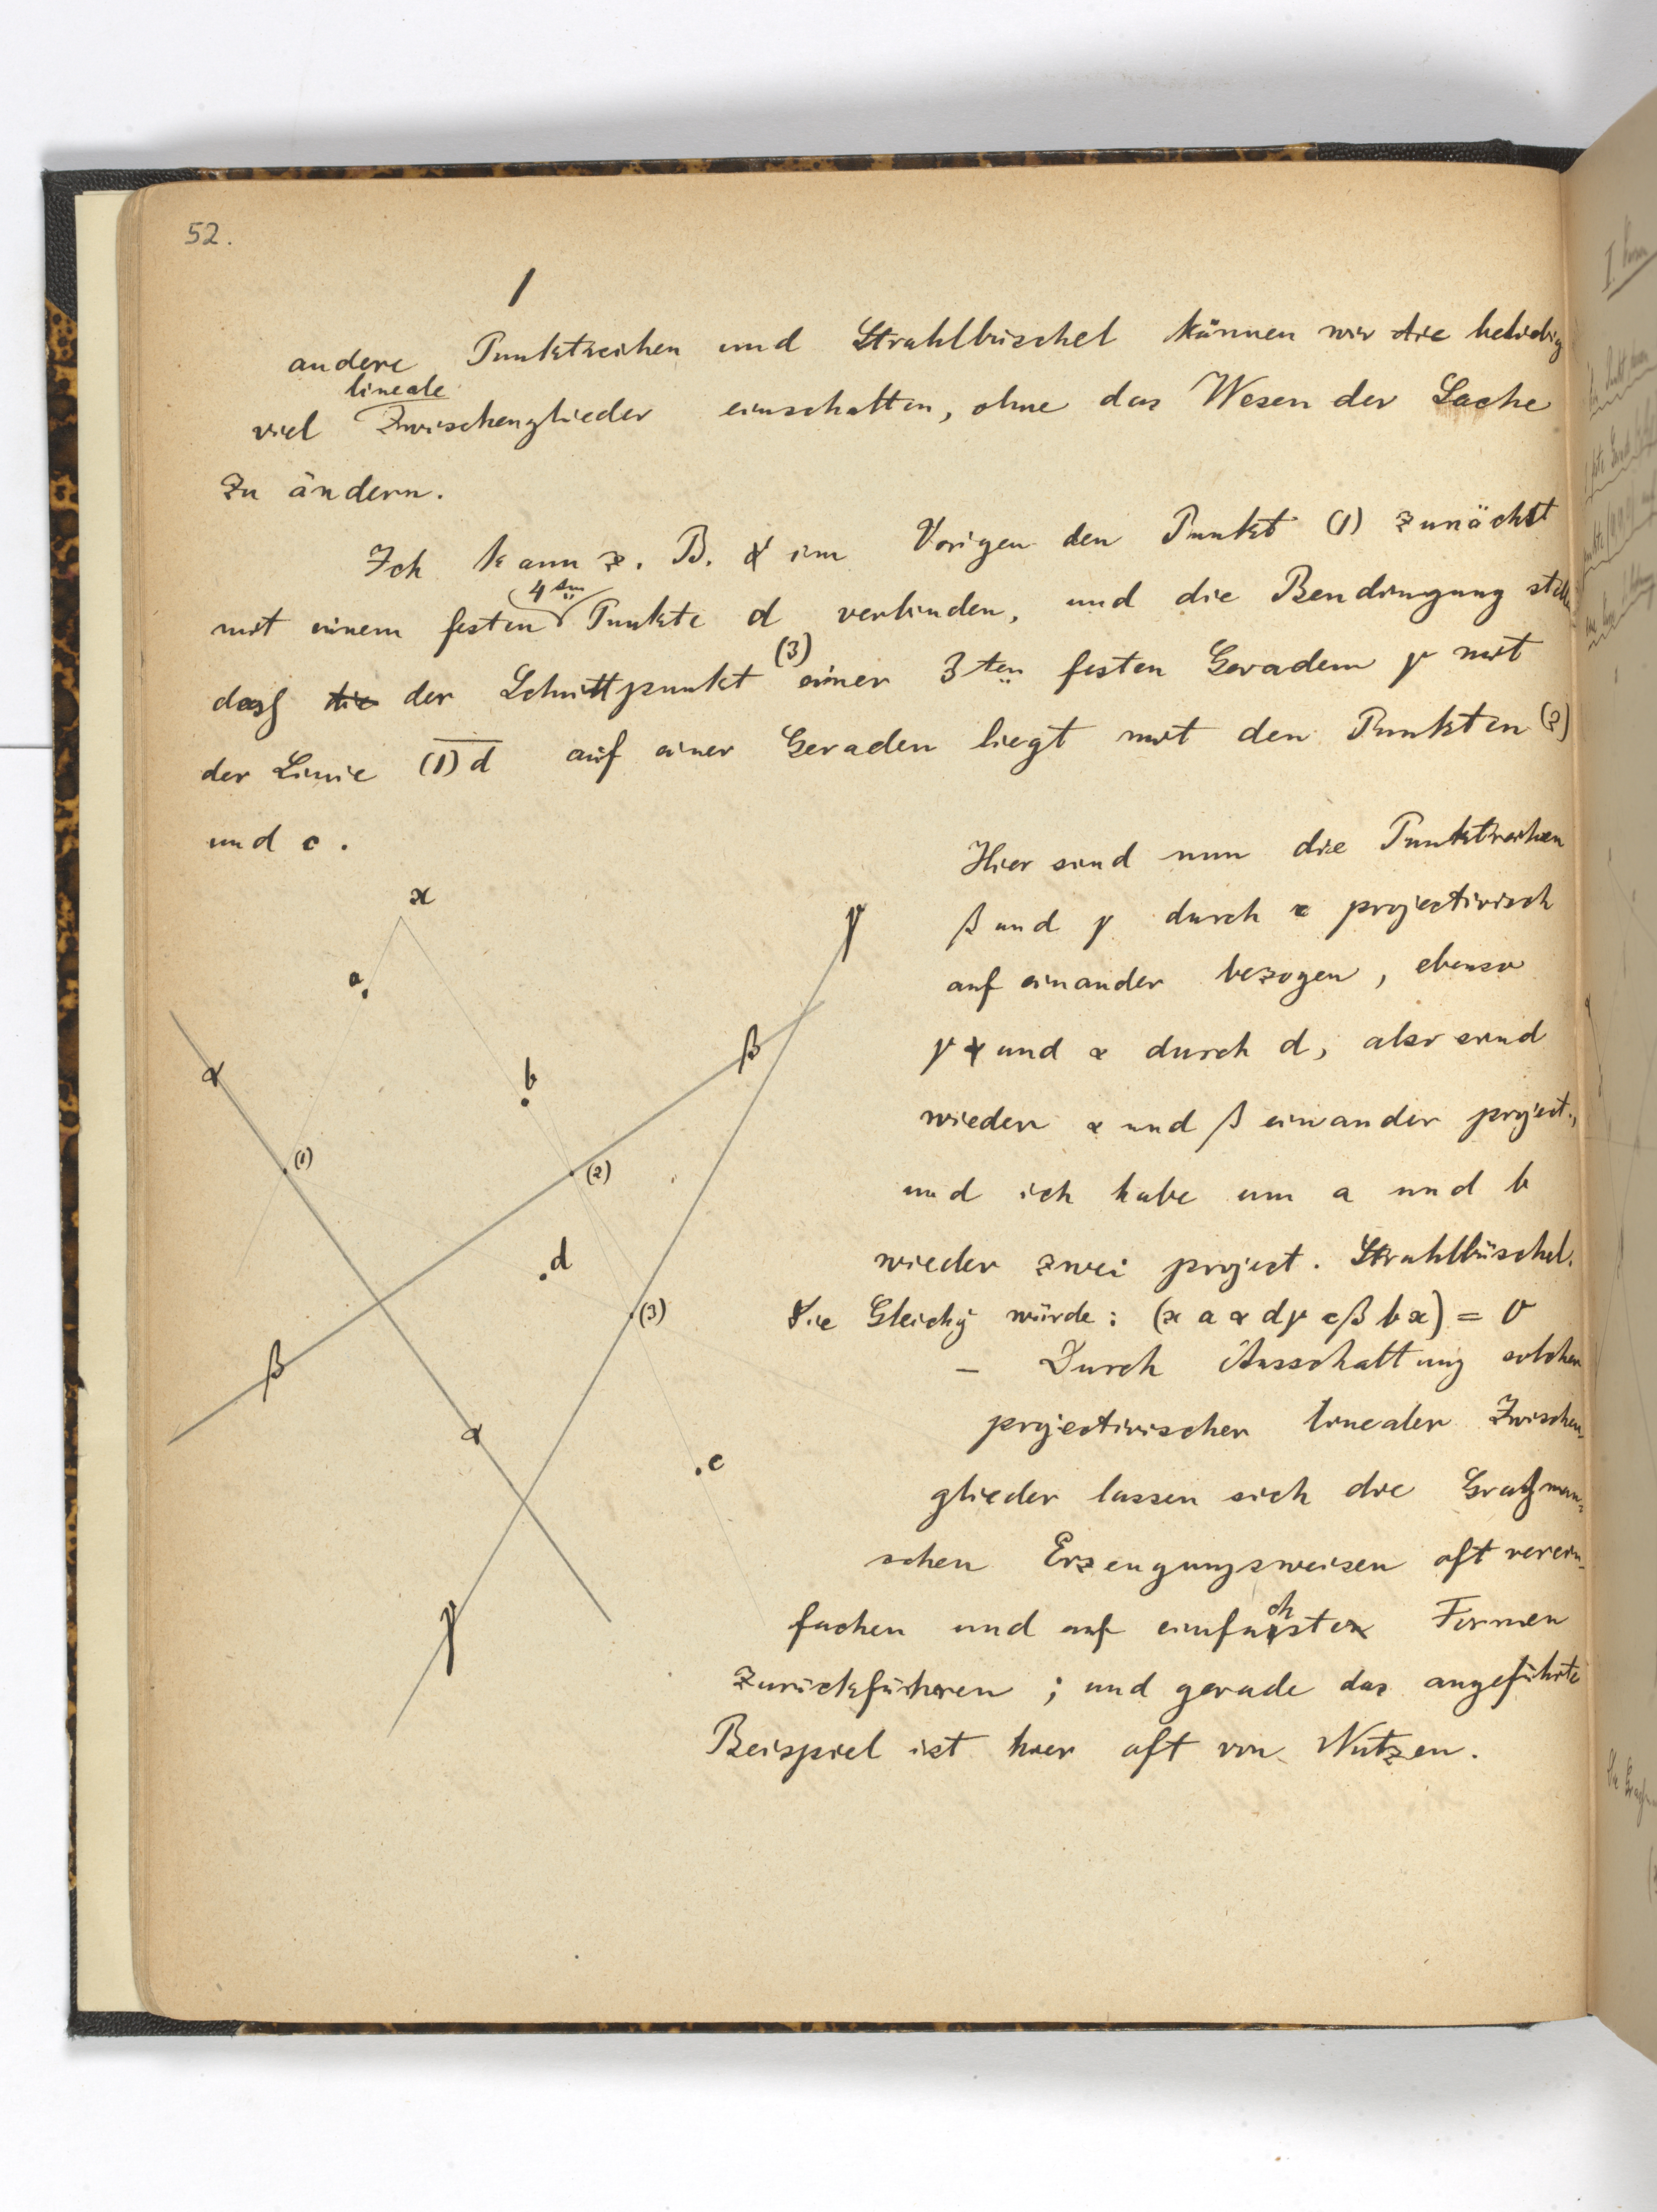 52.
andere Punktreihen und Strahlbüschel können wir die beliebig
lineale
viel Zwischenglieder einschalten, ohne das Wesen der Sache
zu ändern.
Ich kann z. B. im Vorigen den Punkt (1) zunächst
4ten
mit einem festen Punkte d verbinden, und die Bendingung stelle
(3)
dass die der Schnittpunkt einer 3ten festen Geraden γ mit
der Linie (1)d auf einer Geraden liegt mit den Punkten (2)
und c.
Hier sind nun die Punktreihen
β und γ durch c projectivisch
auf einander bezogen, ebenso
γ und α durch d, also sind
wieder α und β einander project.,
und ich habe um a und b
wieder zwei project. Strahlbüschel.
Die Gleichg würde: (x a α d γ c β b x) = 0
– Durch Ausschaltung solcher
projectivischer linealer Zwischen-
glieder lassen sich die Graßman-
schen Erzeugungsweisen oft verein-
fachen und auf einfachste Formen
zurückführen; und gerade das angeführte
Beispiel ist hier oft von Nutzen.
x
γ
a
β
α
b
(1)
(2)
d
(3)
β
α
c
γ